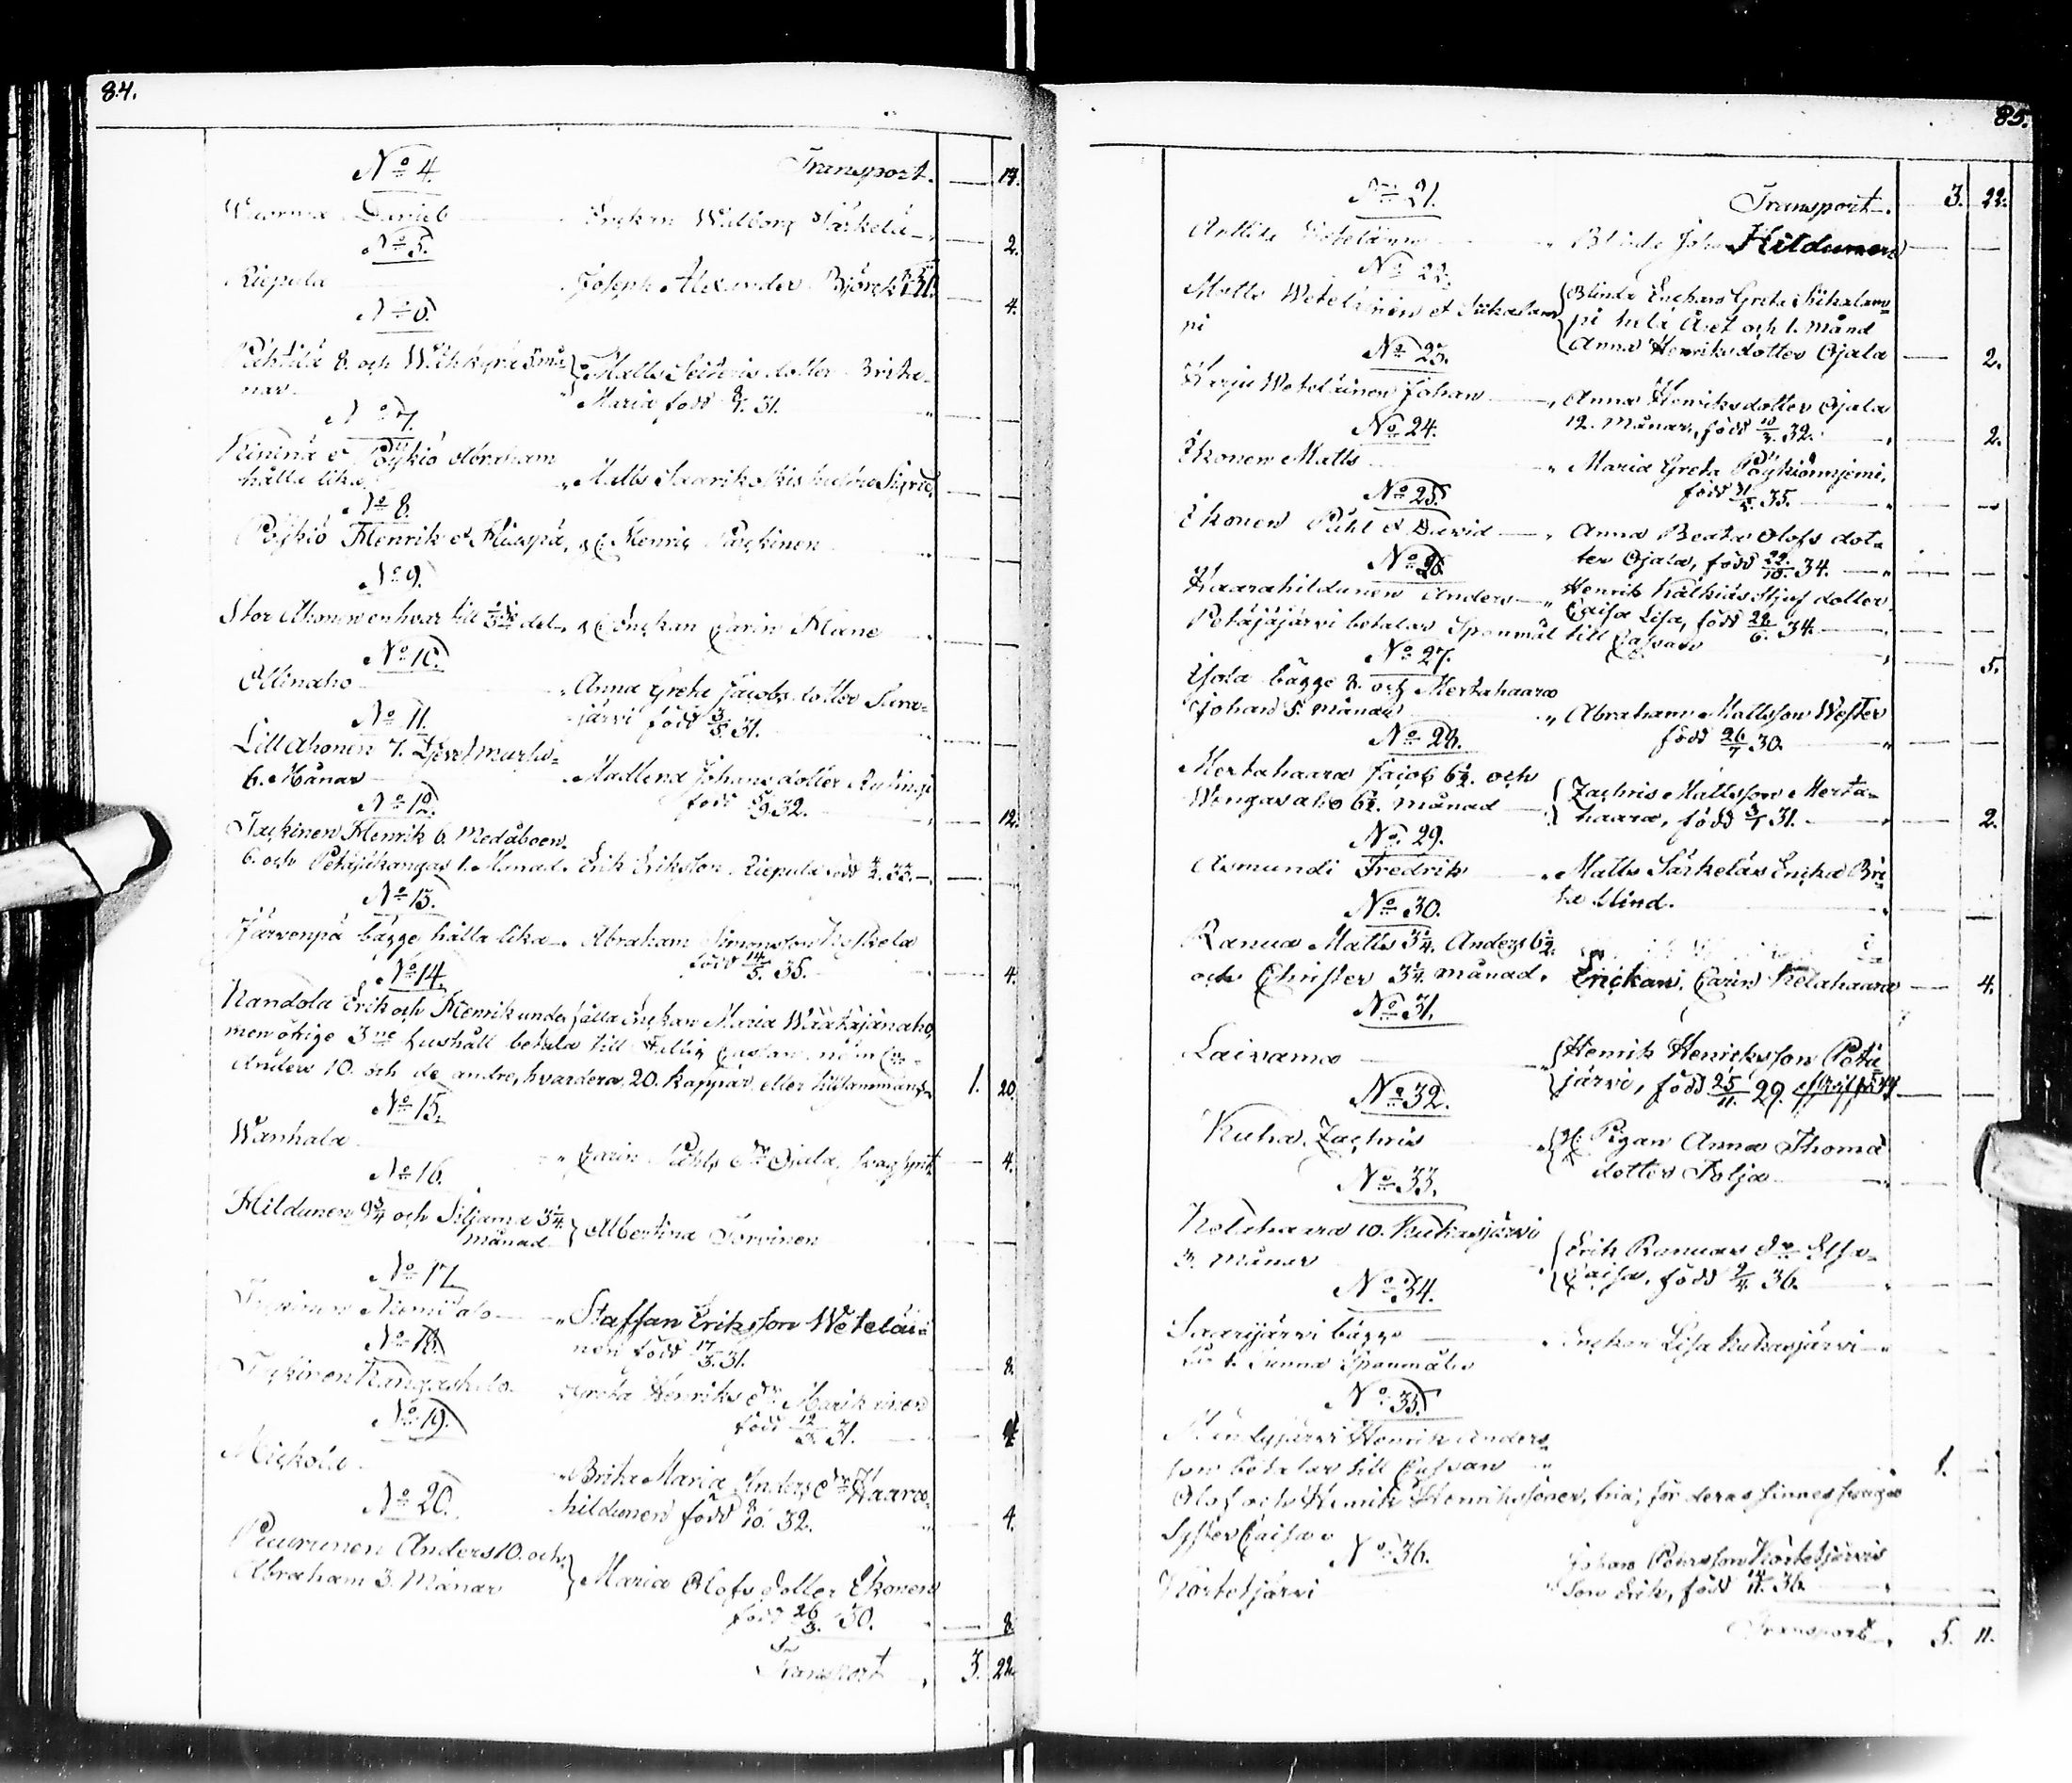 84.
No 4. Transport. — 14.
Wuorma Daniel Enckan Walborg Särkelä — 2.
No 5.
Riepula Joseph Alexander Björck — 4.
No 6.
8. och 5 må-
nar. Matts dotter Brita
Maria född 8/7. 31.
No 7.
Kinena et Pöykiö Abraham
hålla lika Matts
No 8.
Pöykiö Henrik et Henric
No 9.
Stor Ahonen en hvar till del Enckan Carin
No 10.
Ollinaho Anna Greta Jacobs dotter Sura-
järvi född 3/5. 31.
No 11.
Lill Ahonen 7.
6. Månar Madlena Johans dotter
född 5/9. 32. 12.
No 12.
Henrik 6.
6. och Petäjäkangas 1. Månad. Erik Eriksson Riepula född 4/2. 33.
No 13.
Järvenpä bägge hålla lika Abraham Simonsson Koskela
född 14/5. 35. 4.
No 14.
Kandola Erik och Henrik underhålla Enckan Maria Wäätäjänaho,
men öfrige 3ne hushåll betala till Fattig Cassan
Anders 10. och de andre, hvardera 20. kappar, eller tillsammans 1. 20.
No 15.
Wanhala Carin Påhls dr Ojala, 4.
No 16.
Hildunen 9 3/4 och Siljama 3 1/4
månad Albertina Torvinen
No 17.
Staffan Eriksson Weteläi-
nen född 17/3. 31. 8.
No 18.
Greta Henriks dr
född 12/3. 31. 4.
No 19.
Mickola Brita Maria Anders dr Kaara-
hildunen född 8/10. 32. 4.
No 20.
Puurunen Anders 10. och
Abraham 3. Månar Maria Olofs dotter Ekonen
född 26/3. 30. 8.
Transport 3. 22.
85.
No 21. Transport. 3. 22.
Anttila Wetelänen Blinde Joh. Hildunen
No 22.
Matts Weteläinen et Siikalam-
pi Blinda Enckan Greta Siikalam-
pi hela Året och 1. månd
Anna Henriksdotter Ojala 2.
No 23.
Harju Weteläinen Johan Anna Henriksdotter Ojala
12. Månar, född 10/3. 32. 2.
No 24.
Ekonen Matts Maria Greta Pöykiöniemi,
född 31/5. 35.
No 25.
Ekonen Påhl et David Anna Beata Olofs dot-
ter Ojala, född 22/10. 34.
No 26.
Kaarahildunen Anders Henrik Kälkiäs Stjuf dotter
Caisa Lisa, född 28/6. 34.
Petäjäjärvi betalar Spanmål till Cassan 5.
No 27.
Ysola bägge 8. och Mertahaara
Johan 5. månar Abraham Mattsson Wester
född 26/7. 30.
No 28.
Mertahaara Jacob 6 1/2. och
Wengasaho 6 1/2. månad Zachris Mattsson Merta-
haara, född 3/1. 31. 2.
No 29.
Asmundi Fredrik Matts Särkeläs Encka Bri-
ta blind.
No 30.
Ranua Matts 3 1/4. Anders 6 1/2.
och Christer 3 1/4. månad. Enckan Carin Kelahaara 4.
No 31.
Laivama Henrik Henriksson Petä-
järvi, född 25/11. 29.
No 32.
Kuha Zachris Pigan Anna Thoma
dotter Tolja
No 33.
Kelahaara 10. Kukasjärvi
3. Månar Erik Ranuas dr Elsa
Caisa, född 9/4. 36.
No 34.
Saarijärvi bägge Enckan Lisa Kukasjärvi
No 35.
Henrik Anders-
son betalar till Cassan 1.
Olof och Henrik Henrikssöner, fria, för deras sinnes svaga
Syster Caisa
No 36.
Körteljärvi Johan Pehrsson Körteljärvis
Son Erik, född 36.
Transport 5. 11.